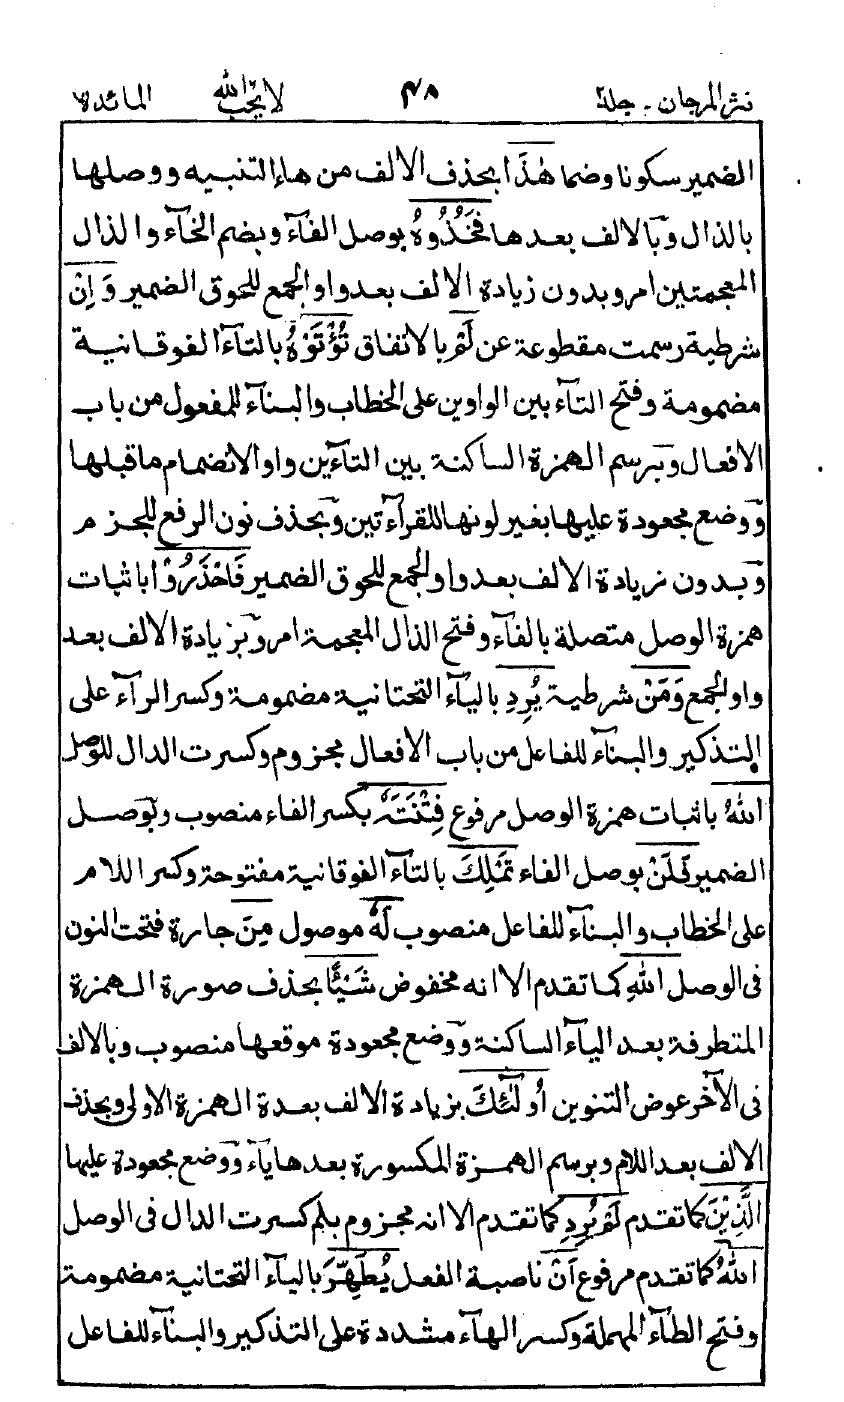 نثر المرجان - جلد٢ ٤٨ لا يحب الله المائدة
الضمير سكونا وضما هٰذَا بحذف الالف من هاء التنبيه ووصلها
بالذال وبالالف بعدها فَخُذُوهُ بوصل الفآء وبضم الخآء والذال
المعجمتين امر وبدون زيادة الالف بعد واو الجمع للحوق الضمير وَاِنْ
شرطية رسمت مقطوعة عن لَمْ بالاتفاق تُؤْتَوْهُ بالتآء الفوقانية
مضمومة وفتح التآء بين الواوين على الخطاب والبنآء للمفعول من باب
الافعال وبرسم الهمزة الساكنة بين التآءين واو الانضمام ما قبلها
ووضع مجعودة عليها بغير لونها للقرآءتين وبحذف نون الرفع للجزم
وبدون زيادة الالف بعد واو الجمع للحوق الضمير فَاحْذَرُوْا باثبات
همزة الوصل متصلة بالفآء وفتح الذال المعجمة امر وبزيادة الالف بعد
واو الجمع وَمَنْ شرطية يُرِدِ باليآء التحتانية مضمومة وكسر الرآء على
التذكير والبنآء للفاعل من باب الافعال مجزوم وكسرت الدال للوصل
اللهُ باثبات همزة الوصل مرفوع فِتْنَتَهٗ بكسر الفاء منصوب وبوصل
الضمير فَلَنْ بوصل الفاء تَمْلِكَ بالتآء الفوقانية مفتوحة وكسر اللام
على الخطاب والبنآء للفاعل منصوب لَهٗ موصول مِنَ جارة فتحت النون
فى الوصل اللهِ كما تقدم الا انه مخفوض شَيْـًٔا بحذف صورة الهمزة
المتطرفة بعد اليآء الساكنة ووضع مجعودة موقعها منصوب وبالالف
فى الآخر عوض التنوين أُولٰٓئِكَ بزيادة الالف بعدة الهمزة الاولى وبحذف
الالف بعد اللام وبرسم الهمزة المكسورة بعدها يآء ووضع مجعودة عليها
الَّذِيْنَ كما تقدم لَمْ يُرِدِ كما تقدم الا انه مجزوم بلم كسرت الدال فى الوصل
اللهُ كما تقدم مرفوع اَنْ ناصبة الفعل يُطَهِّرَ باليآء التحتانية مضمومة
وفتح الطآء المهملة وكسر الهآء مشددة على التذكير والبنآء للفاعل